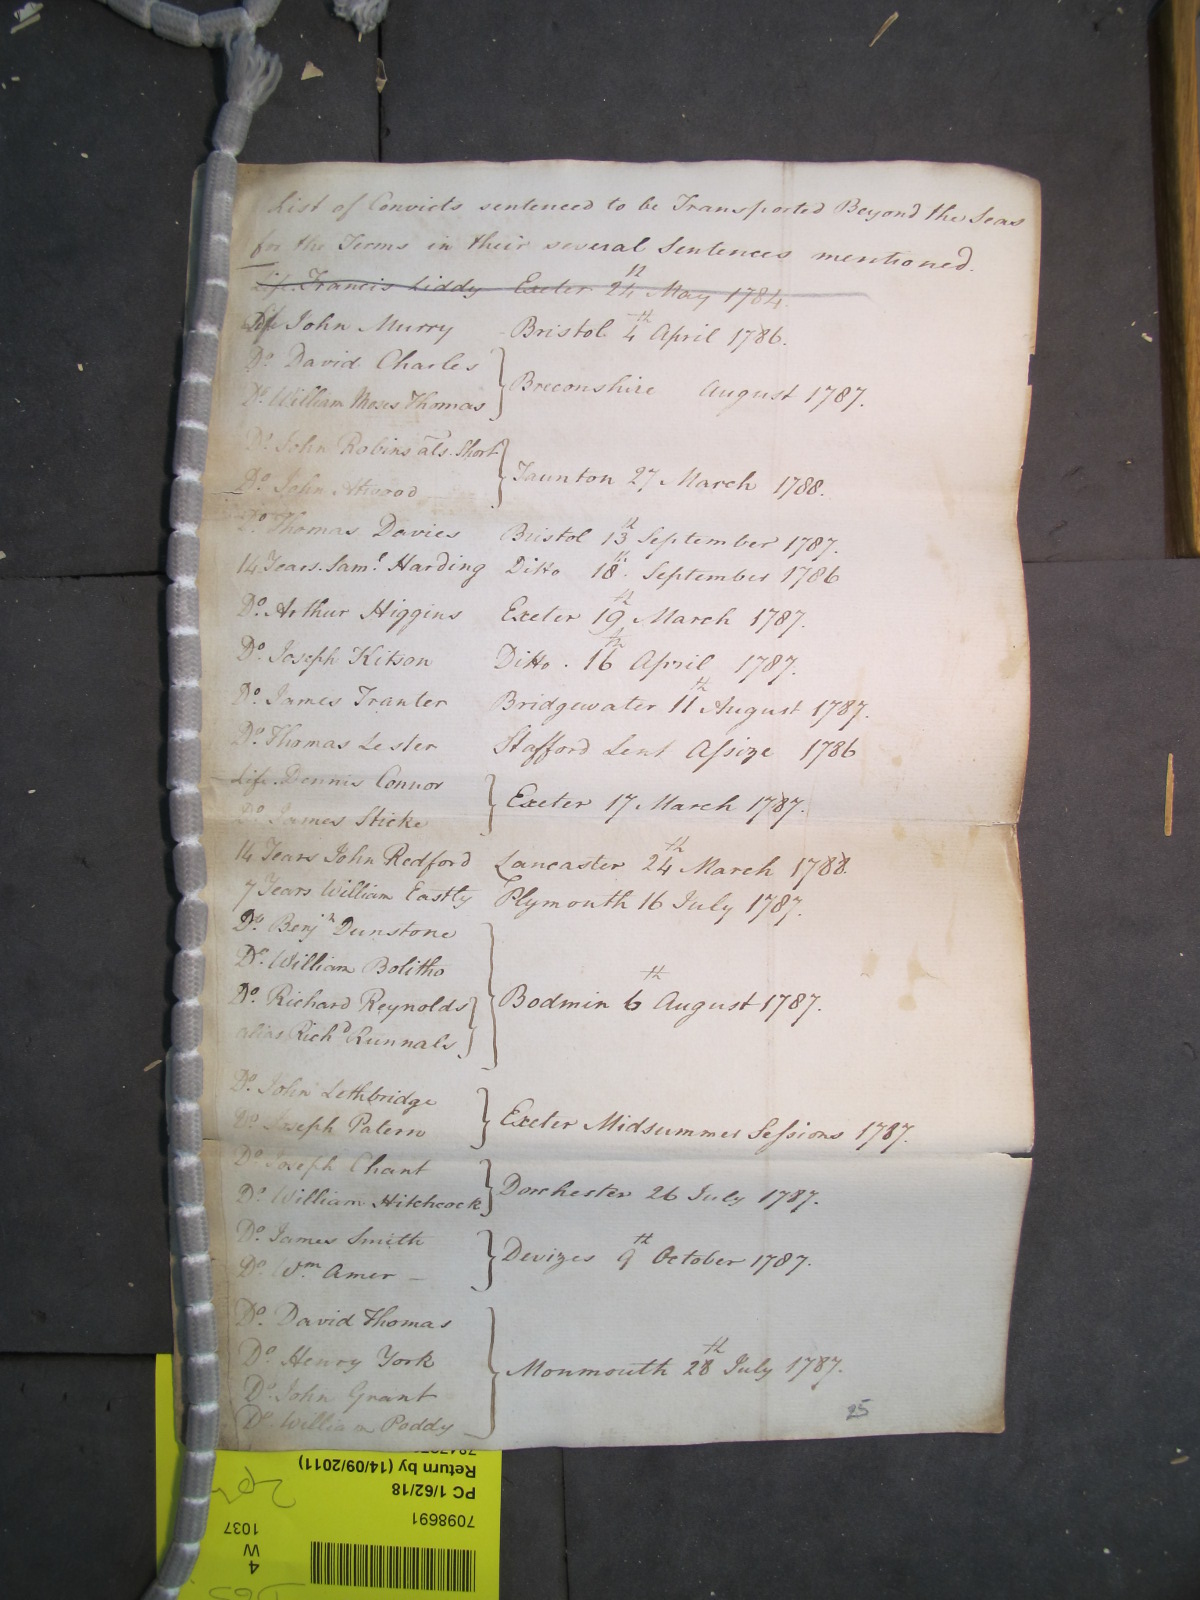 List of Convicts sentenced to be Transported Beyond the Seas
for the Terms in their several Sentences mentioned.
Life. Francis Liddy Exeter 24th May 1784.
Life John Murry Bristol 4th April 1786.
Do. David Charles
Do. William Moses Thomas
Breconshire August 1787.
Do. John Robins als. Short
Do. John Atwood
Taunton 27 March 1788.
Do. Thomas Davies Bristol 13th September 1787.
14 Years. Saml. Harding Ditto 18th. September 1786
Do. Arthur Higgins Exeter 19th March 1787.
Do. Joseph Kitson Ditto. 16th April 1787.
Do. James Tranter Bridgewater 11th August 1787.
Do. Thomas Lester Stafford Lent Assize 1786
Life. Dennis Connor
Do. James Sticke
Exeter 17 March 1787.
14 Years John Redford Lancaster 24th March 1788.
7 Years William Eastly Plymouth 16 July 1787.
Do. Benjn. Dunstone
Do. William Bolitho
Do. Richard Reynolds
alias Richd. Runnals
Bodmin 6th August 1787.
Do. John Lethbridge
Do. Joseph Paterno
Exeter Midsummer Sessions 1787.
Do. Joseph Chant
Do. William Hitchcock
Dorchester 26 July 1787.
Do. James Smith
Do. Wm. Amer
Devizes 9th October 1787.
Do. David Thomas
Do. Henry York
Do. John Grant
Do. William Poddy
Monmouth 28th July 1787.
25
Return by (14/09/2011)
PC 1/62/18
7098691
1037
W
4